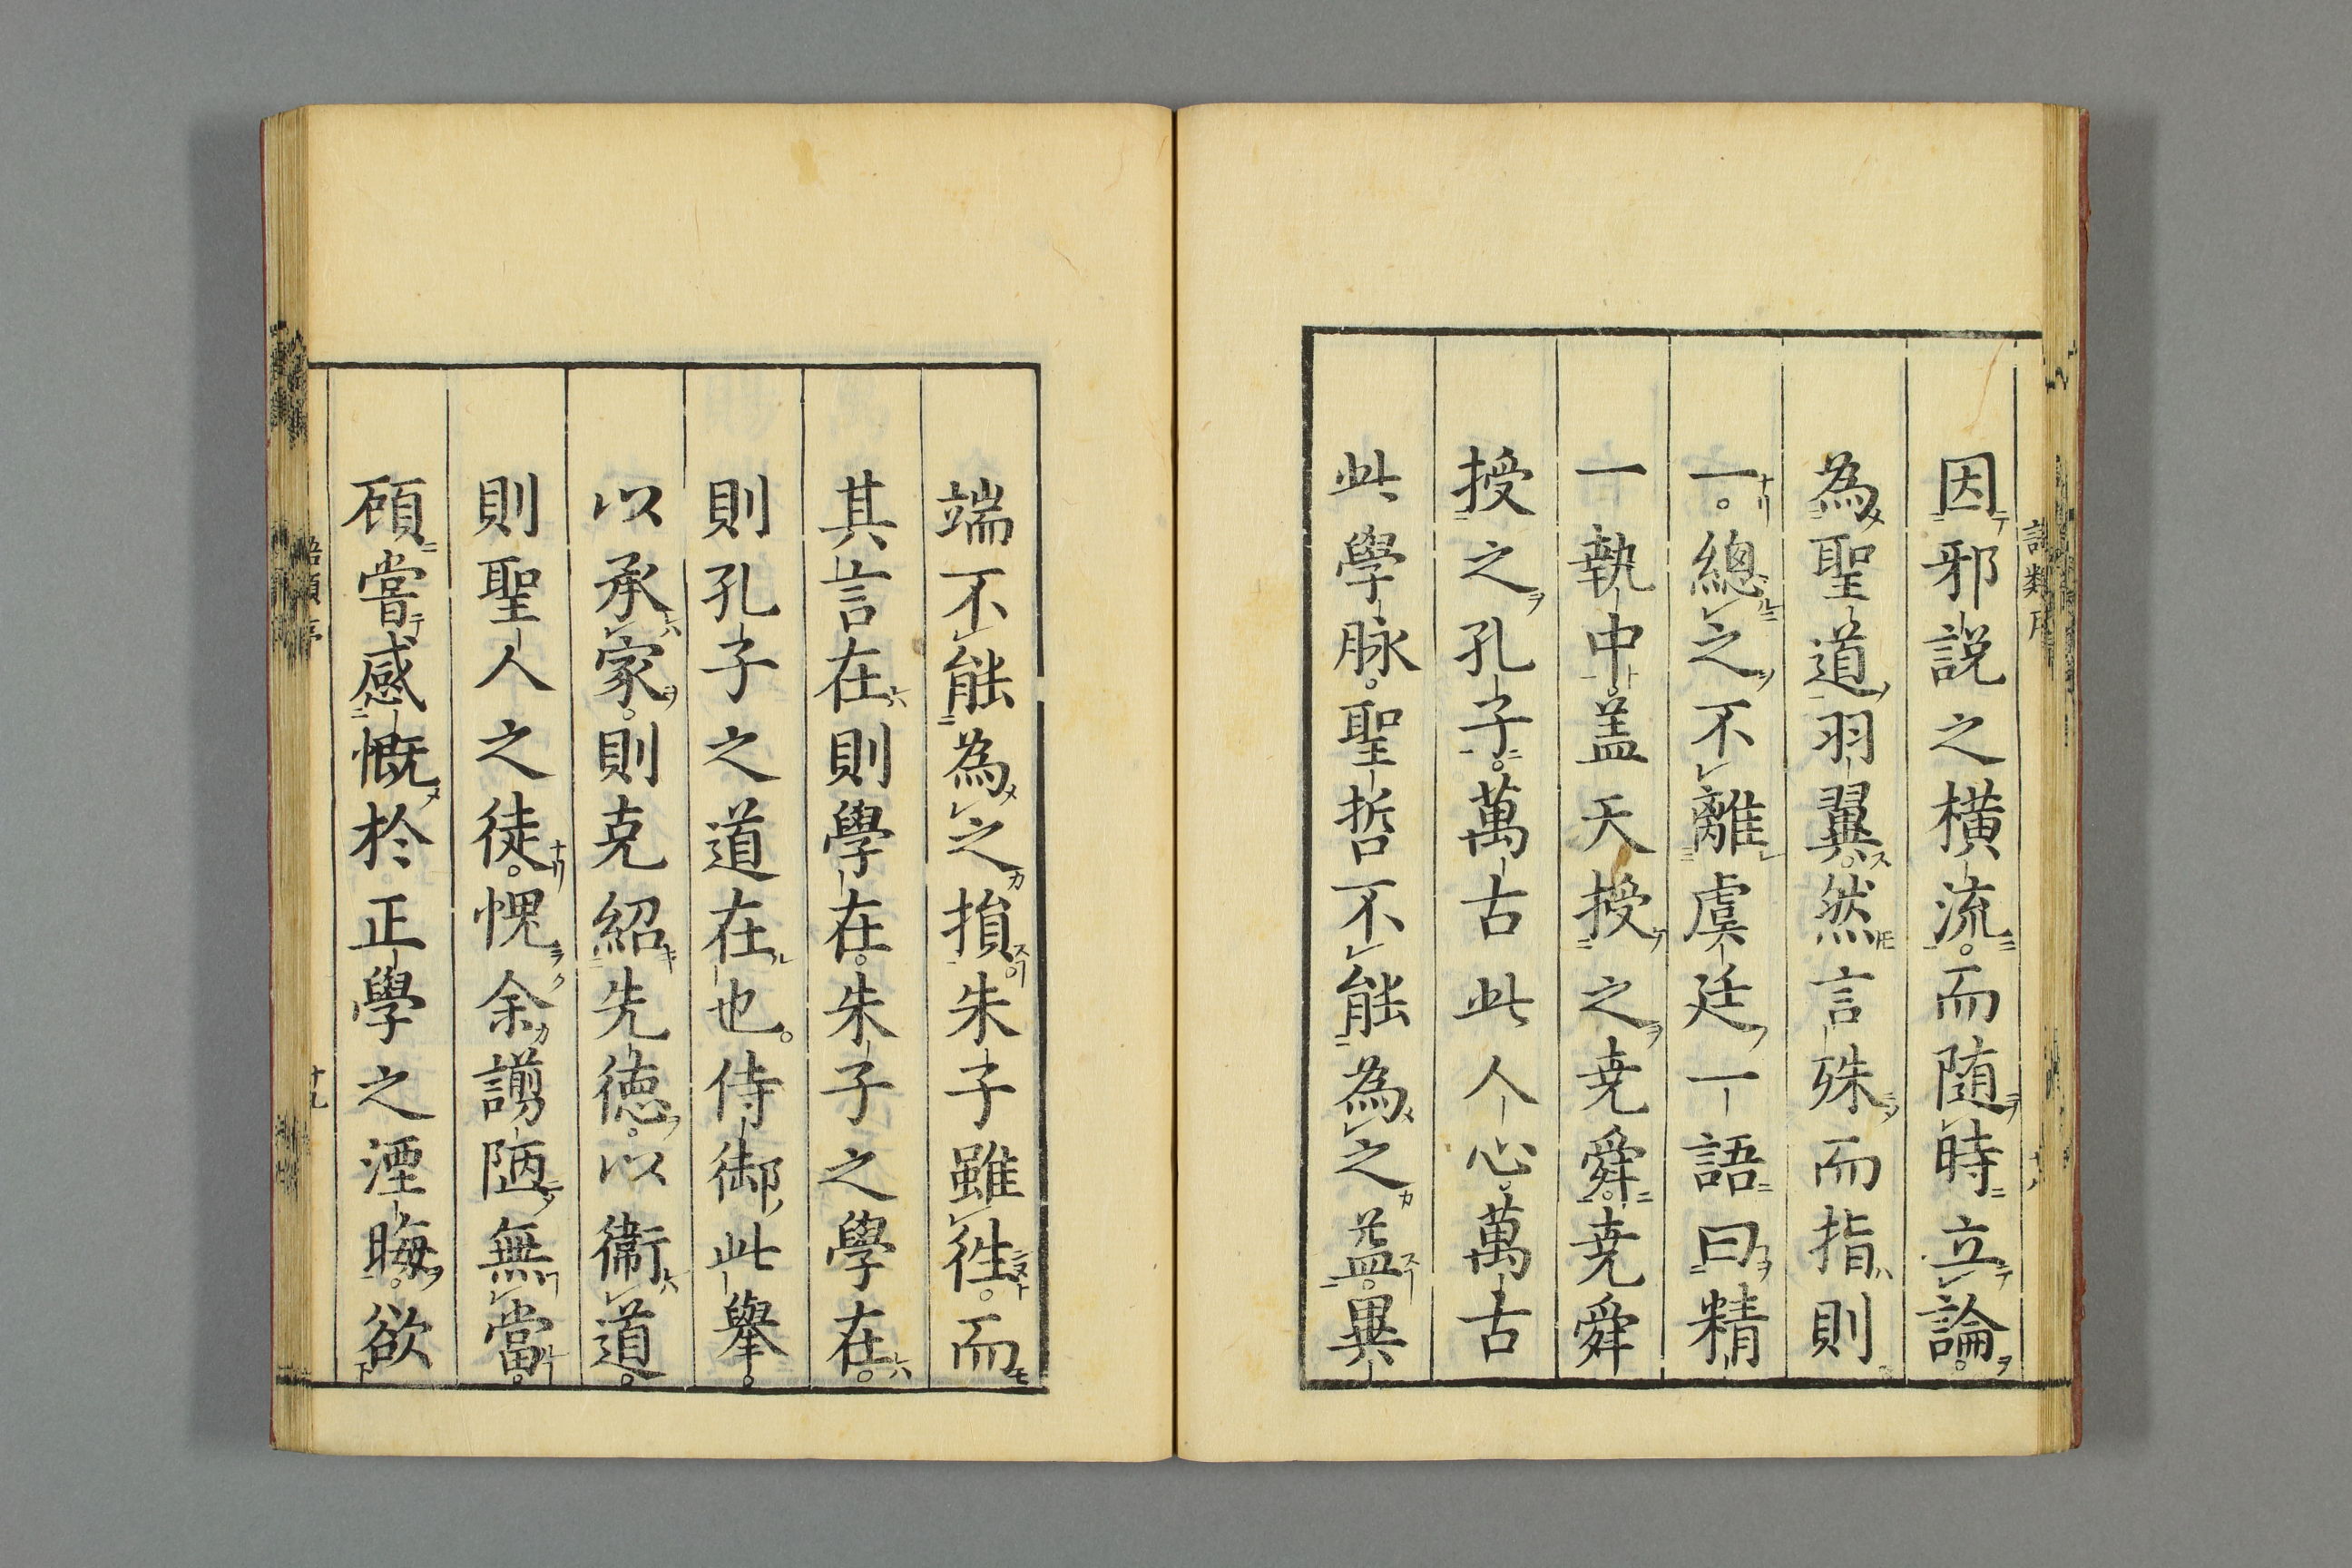 因邪説之横流。而随時立論。
為聖道羽翼。然言殊而指則
一。總之不離虞廷一語曰精
一執中。盖天授之尭舜。尭舜
授之孔子。萬古此人心。萬古
此學脉。聖哲不能為之益。異
端不能為之損。朱子雖徃。而
其言在則學在。朱子之學在。
則孔子之道在也。侍御此擧。
以承家。則克紹先徳。以衞道。
則聖人之徒。愧余謭陋無當。
顧嘗感慨於正學之湮晦。欲